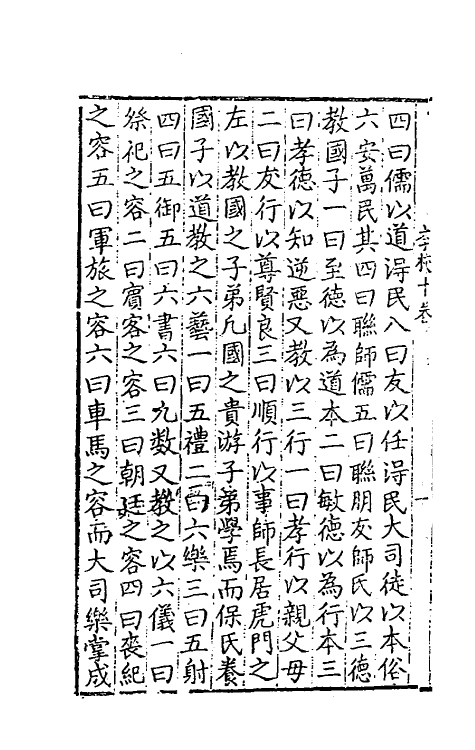 四曰儒以道淂民八曰友以任淂民大司徒以本俗
六安萬民其四曰聯師儒五曰聯朋友師氏以三德
教國子一曰至德以為道本二曰敏德以為行本三
曰孝德以知逆惡又教以三行一曰孝行以親父母
二曰友行以尊賢良三曰順行以事師長居虎門之
左以教國之子弟凡國之貴游子弟學焉而保氏養
國子以道教之六藝一曰五禮二曰六樂三曰五射
四曰五御五曰六書六曰九数又教之以六儀一曰
祭祀之容二曰賓客之容三曰朝廷之容四曰喪紀
之容五曰軍旅之容六曰車馬之容而大司樂掌成
學校十卷
一